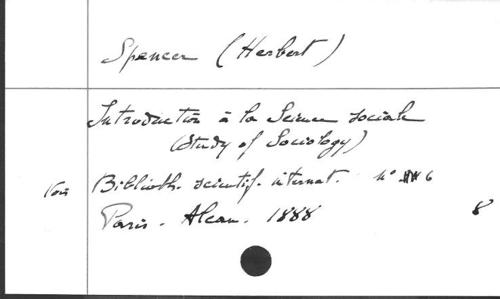 Spencer (Herbert)
Introduction à la Science sociale
(Study of Sociology)
Voir Biblioth. scientif. internat. No 6
Paris. Alcan. 1888
8